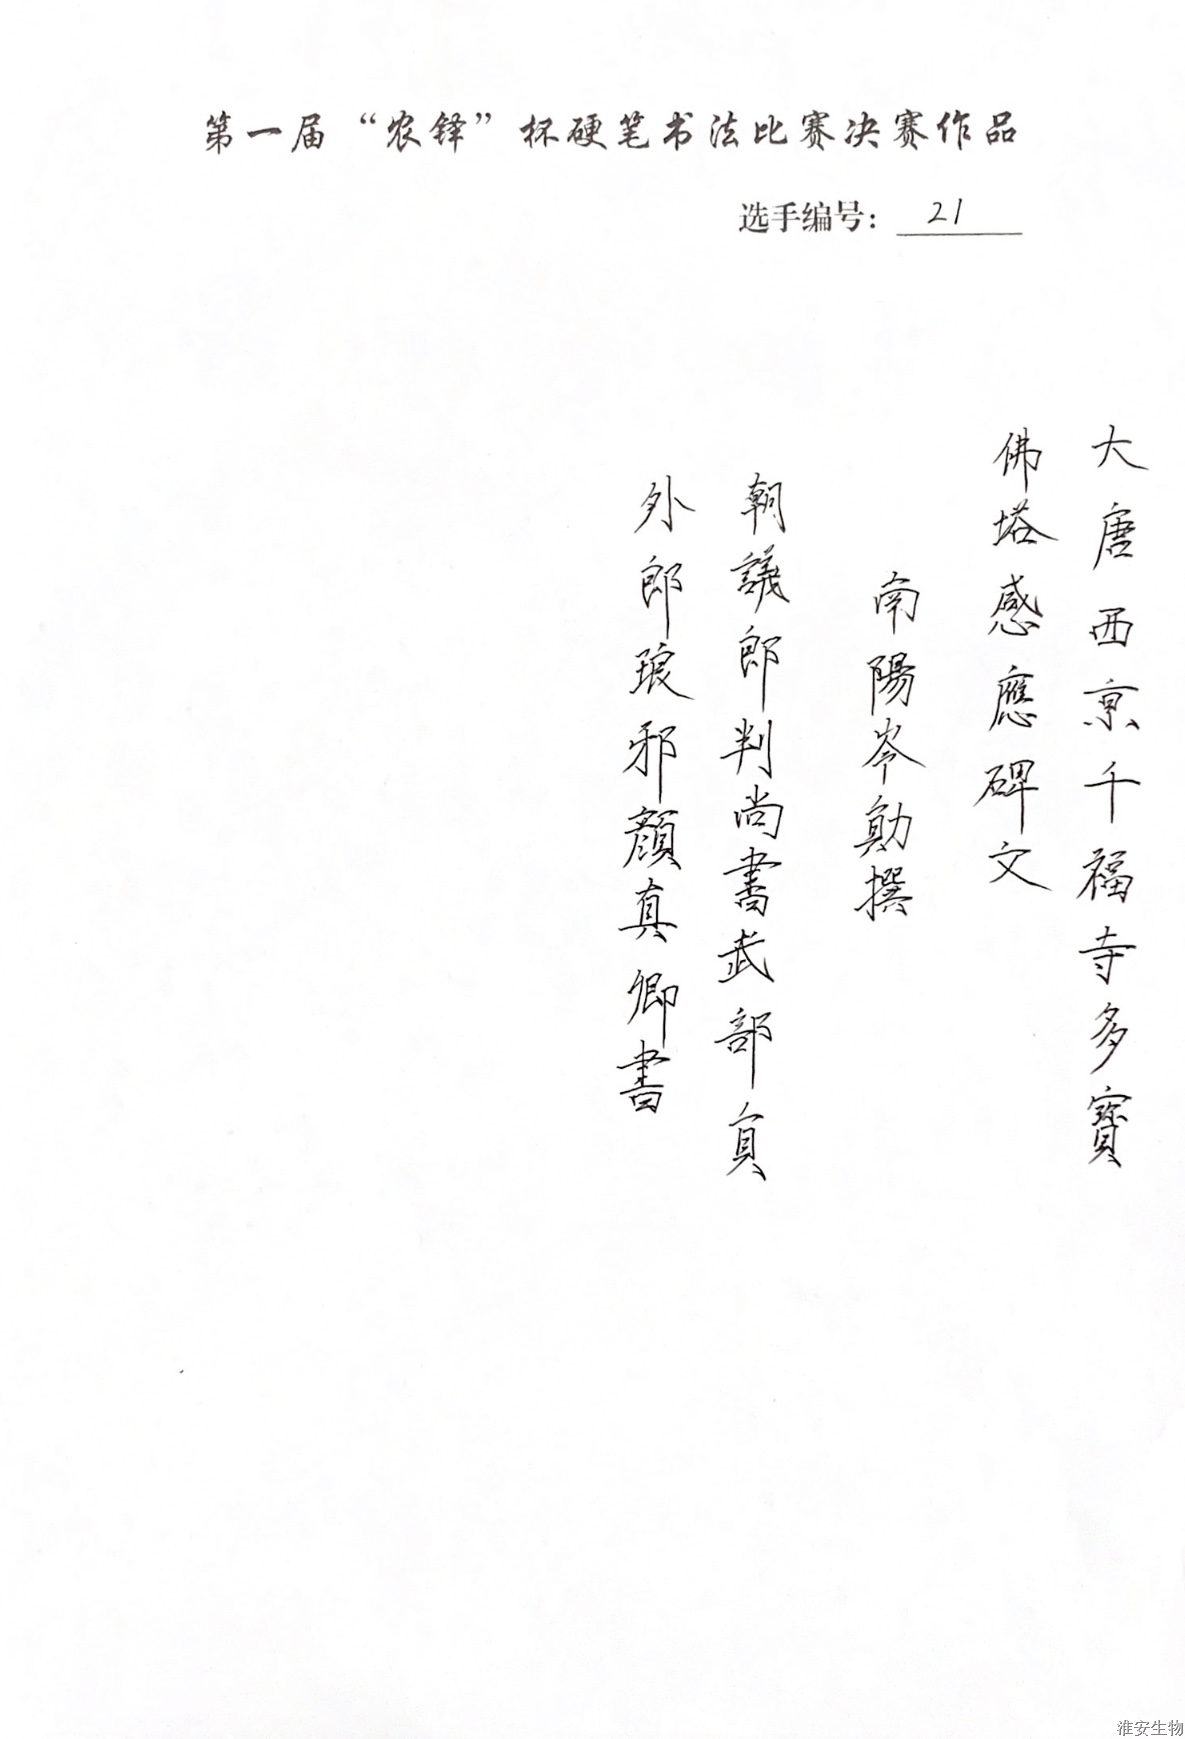 第一届“农铎”杯硬笔书法比赛决赛作品
选手编号：21
大唐西京千福寺多寶
佛塔感應碑文
南陽岑勛撰
朝議郎判尚書武部員
外郎琅邪顏真卿書
淮安生物